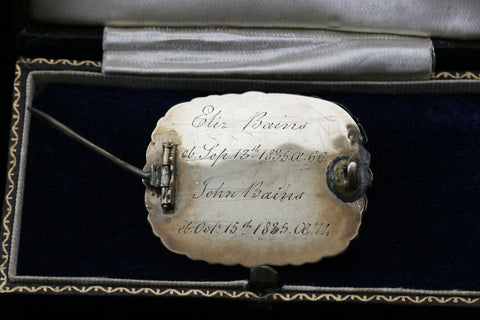 Eliz Bains
ob Sep 13th 1835. Æ 66
John Bains
ob Oct. 15th 1835. Æ 74